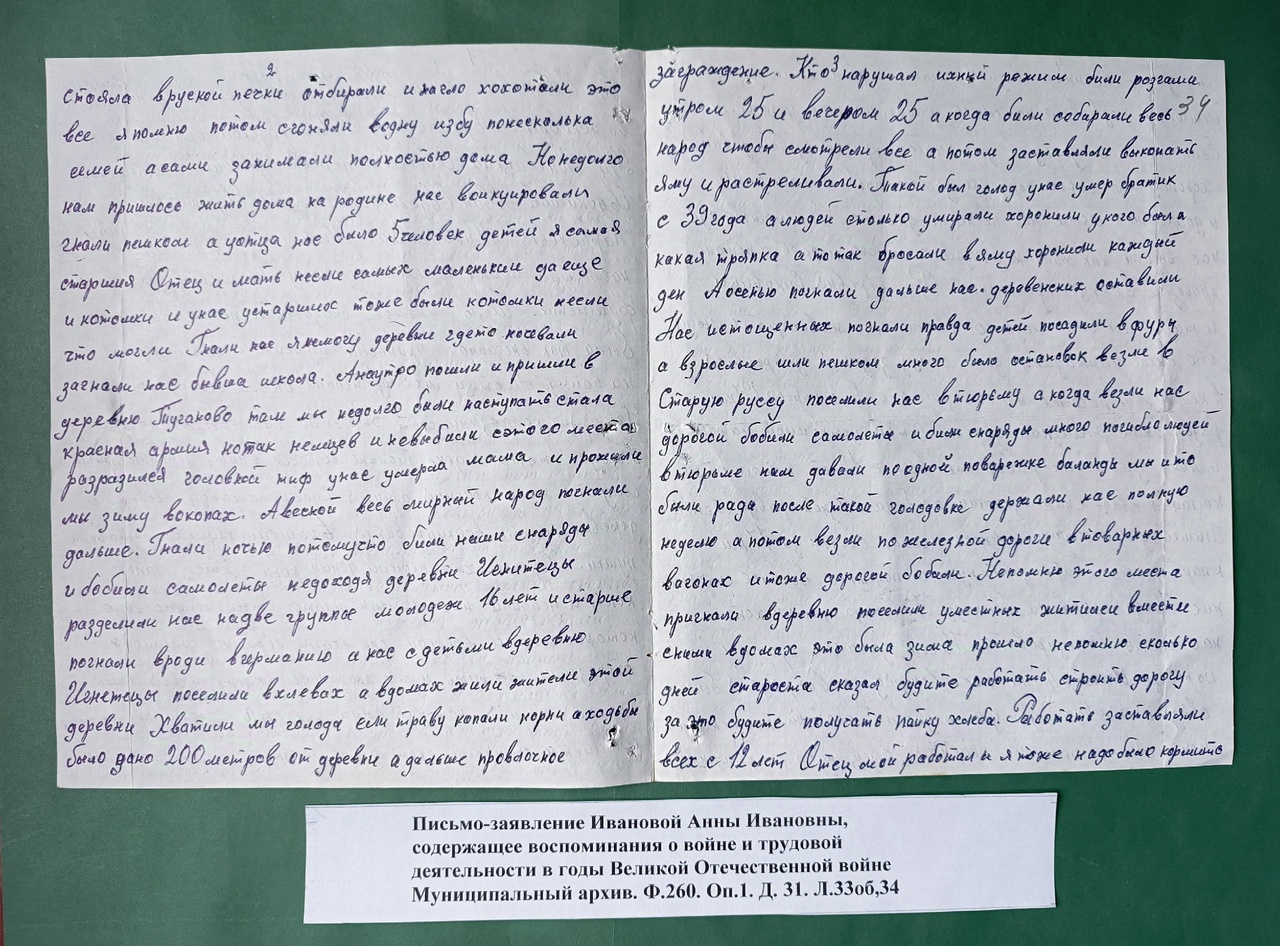 2
стояла вруской печки отбирали инагло хохотали это
все япомню потом сгоняли водну избу понесколька
семей асами занимали полкостью дома Но недолго
нам пришлось жить дома народине нас воикуировали
гнали пешком ауотца нас было 5человек детей я самая
старшия Отец и мать несли самых маленьким да еще
и котомки и унас устаршых тоже были котомки несли
что могли Гнали нас янемогу деревни гдето начевали
загнали нас бывша школа. Анаутро пошли и пришли в
деревню Туганово там мы недолго были наступать стала
красная армия но так немцев и невыбили сэтого места
разразился головной тиф унас умерла мама и прожили
мы зиму вокопах. Авесной весь мирный народ погнали
дальше. Гнали ночью потомучто били наши снаряды
и бобили самолеты недоходя деревни Игнитецы
разделили нас надве группы молодеж 16 лет истарше
погнали вроди вгерманию анас сдетьми вдеревню
Игнетецы поселили вхлевах авдомах жили жители этой
деревни Хватили мы голода ели траву копали корни аходьбы
было дано 200метров от деревни адальше провлочное
3
заграждение. Кто нарушал ихний режим били розгами
34
утром 25 и вечером 25 акогда били собирали весь
народ чтобы смотрели все апотом заставляли выкопать
яму ирастреливали. Такой был голод унас умер братик
с 39года алюдей столько умирали хоронили укого была
какая тряпка атотак бросали вяму хоронили каждый
ден Аосенью погнали дальше нас. деревенских оставили
Нас истощенных погнали правда детей посадили вфуры
а взрослые шли пешком много было остановок везли в
Старую руссу поселили нас втюрьму акогда везли нас
дорогой бобили самолеты ибили снаряды много погиблолюдей
втюрьме нам давали поодной поварежке баланды мы ито
были рада после такой голодовке держали нас полную
неделю апотом везли пожелезной дороги втоварных
вагонах итоже дорогой бобили. Непомню этого места
пригнали вдеревню поселили уместных житилей вместе
сними вдомах это была зима прошло непомню сколько
дней староста сказал будите работать строить дорогу
за это будите получать пайку хлеба. Работать заставляли
всех с 12лет Отец мой работал и я тоже надобыло кормить
Письмо-заявление Ивановой Анны Ивановны,
содержащее воспоминания о войне и трудовой
деятельности в годы Великой Отечественной войне
Муниципальный архив. Ф.260. Оп.1. Д. 31. Л.33об,34